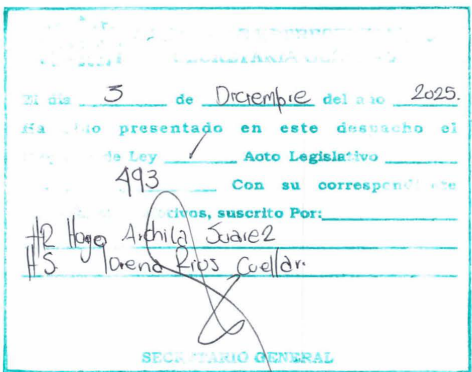 SECRETARIA
El dia 3 de Diciembre del año 2025.
Ha sido presentado en este despacho el
de Ley / Acto Legislativo
493 Con su correspondiente
suscrito Por:
HR Hugo Archila Suarez
HS Lorena Rios Cuellar.
SECRETARIO GENERAL